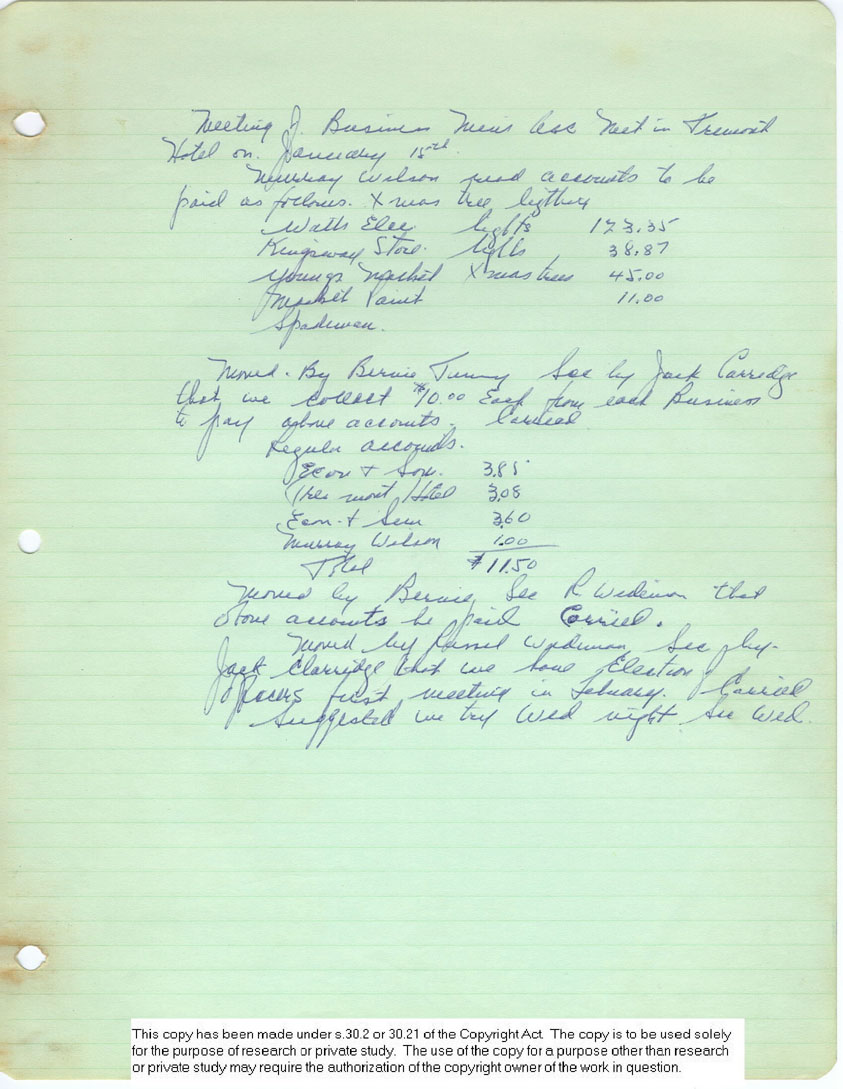 Meeting of Business Mens Ass Meet in Tremont
Hotel on January 15th.
Murray Wilson read accounts to be
paid as follows. Xmas tree
Watts Elec. lights 123.35
Kingsway Store. lights 38.87
Youngs Market Xmas trees 45.00
Market Paint 11.00
Spademan.
Moved. By Bernie Sec by Jack Carredge
that we collect $10.00 Each from each Business
to pay above accounts. Carried
Regular accounts.
Econ & Son. 3.85
Tremont Hotel 3.08
Econ & 3.60
Murray Wilson 1.00
Total $11.50
Moved by Bernie, Sec R Wideman that
above accounts be paid Carried.
Moved by Russel Wideman, Sec by.
Jack Clarridge that we have Election of
Officers first meeting in February. Carried
Suggested we try Wed night. Wed.
This copy has been made under s.30.2 or 30.21 of the Copyright Act. The copy is to be used solely
for the purpose of research or private study. The use of the copy for a purpose other than research
or private study may require the authorization of the copyright owner of the work in question.